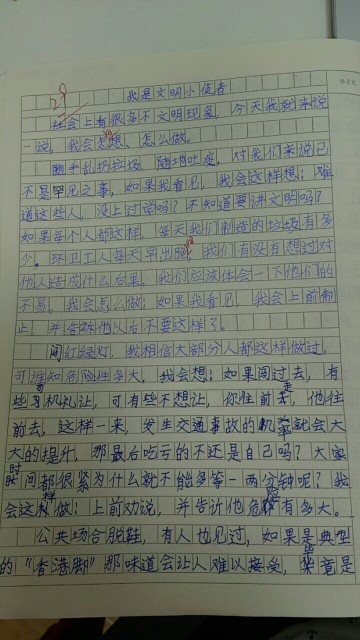 29
我是文明小使者
社会上有很多不文明现象,今天我就来说
一说,我会怎想、怎么做。
随手乱扔垃圾,随地吐痰,对我们来说已
不是罕见之事,如果我看见,我会这样想:难
道这些人,没上过学吗?不知道要讲文明吗?
如果每个人都这样,每天我们制造的垃圾有多
少。环卫工人每天早出晚,我们有没有想过对
他人造成什么后果,我们应该体会一下他们的
不易。我会怎么做:如果我看见,我会上前制
止,并告诉他以后不要这样了。
闯红绿灯,我相信大部分人都这样做过,
可谁知危险性多大,我会想:如果闯过去,有
些司机礼让,可有些不想让,你往前走,他往
前去,这样一来,发生交通事故的机率就会大
大的提升,那最后吃亏的不还是自己吗?大家
时间都很紧为什么就不能多等一两分钟呢?我
会这样做:上前劝说,并告诉他危险有多大。
公共场合脱鞋,有人也见过,如果是典型
的“香港脚”那味道会让人难以接受,毕竟是